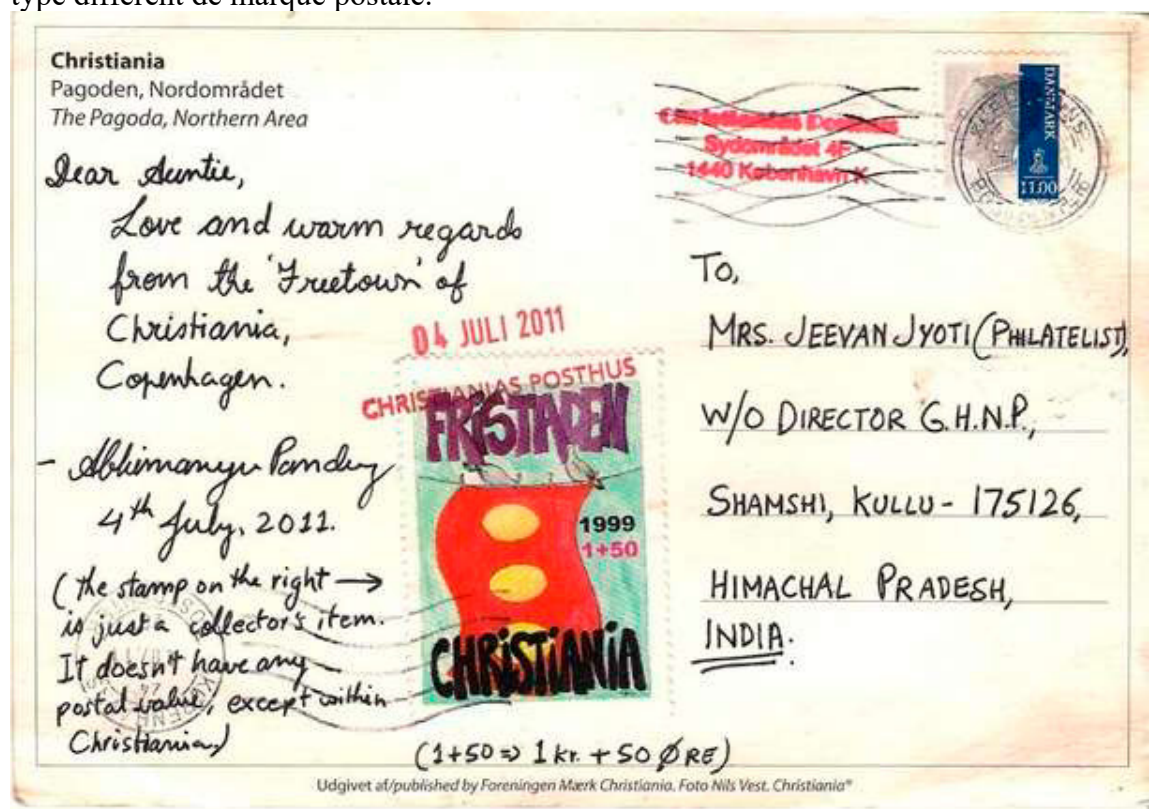 type différent de marque postale.
Christiania
Pagoden, Nordområdet
The Pagoda, Northern Area
Dear Auntie,
Love and warm regards
from the 'Freetown' of
Christiania,
Copenhagen.
- Abhimanyu Pandey
4th July, 2011.
(the stamp on the right →
is just a collector's item.
It doesn't have any
postal value, except within
Christiania)
04 JULI 2011
CHRISTIANIAS POSTHUS
FRISTADEN
1999
1+50
CHRISTIANIA
(1+50 => 1 kr. + 50 ØRE)
Christianias Posthus
Sydområdet 4F
1440 København K
DANMARK
11.00
To,
MRS. JEEVAN JYOTI (PHILATELIST),
W/O DIRECTOR G.H.N.P.,
SHAMSHI, KULLU - 175126,
HIMACHAL PRADESH,
INDIA.
Udgivet af/published by Foreningen Mærk Christiania. Foto Nils Vest. Christiania®